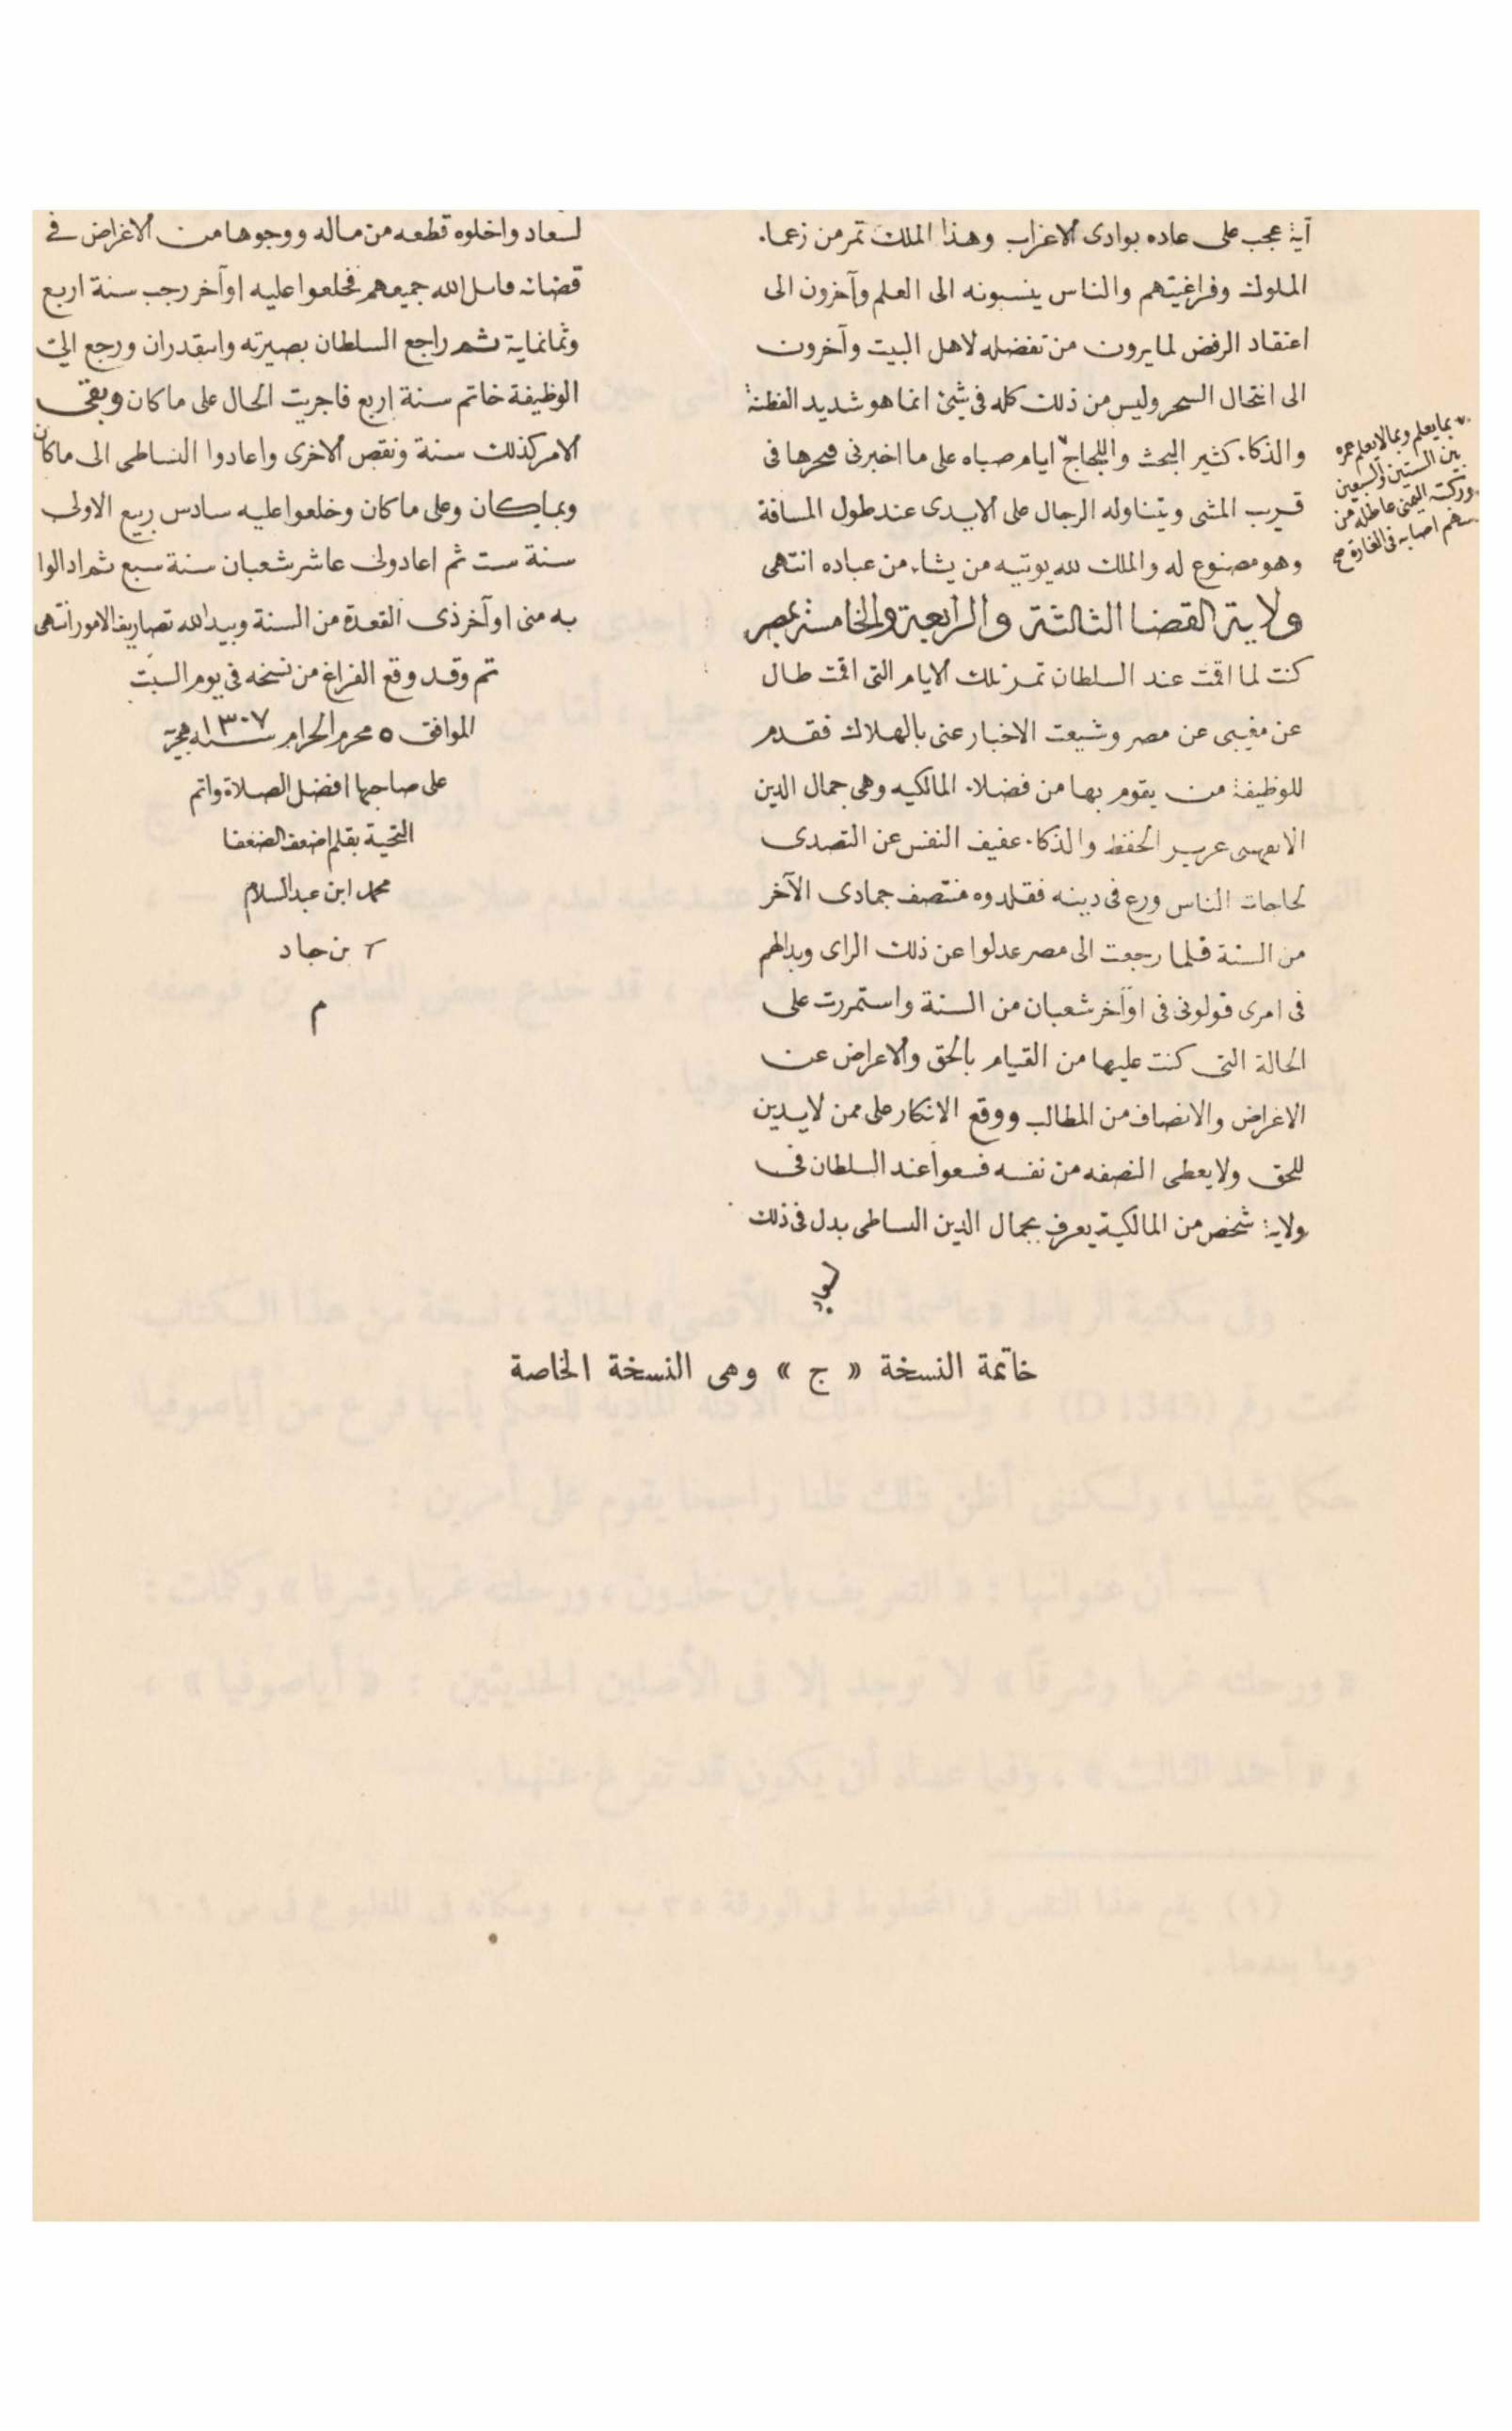 آية عجب على عاده بوادى الاعراب وهذا الملك تمر من زعما.
الملوك وفراعنيتهم والناس ينسبونه الى العلم وآخرون الى
اعتقاد الرفض لما يرون من تفضله لاهل البيت وآخرون
الى انتحال السحر وليس من ذلك كله فى شئ انما هو شديد الفطنة
والذكا. كثير البحث واللجاج ايام صباه على ما اخبرنى فيجرها فى
قريب المشى ويتناوله الرجال على الايدى عند طول المسافة
وهو مصنوع له والملك لله يوتيه من يشاء من عباده انتهى
بما يعلم وبما لا يعلم عمره
بين الستين والسبعين
وركبته اليمنى عاطلة من
سهم اصابه فى الغارة صح
ولاية القضا الثالثة والرابعة والخامسة بمصر
كنت لما اقمت عند السلطان تمر تلك الايام التى اقمت طال
عن مغيبى عن مصر وشيعت الاخبار عنى بالهلاك فقدم
للوظيفة من يقوم بها من فضلا. المالكيه وهى جمال الدين
الافهسى عرير الحفظ والذكا. عفيف النفس عن التصدى
لحاجات الناس ورع فى دينه فقلدوه منتصف جمادى الآخر
من السنة فلما رجعت الى مصر عدلوا عن ذلك الراى وبدالهم
فى امرى فولونى فى اواخر شعبان من السنة واستمررت على
الحالة التى كنت عليها من القيام بالحق والاعراض عن
الاغراض والانصاف من المطالب ووقع الانكار على ممن لا يدين
للحق ولا يعطى النصفه من نفسه فسعوا عند السلطان فى
ولاية شخص من المالكية يعرف بجمال الدين البساطى بدل فى ذلك
لسعاد واخلوه قطعه من ماله ووجوها من الاغراض فى
قضانه الله جميعهم فخلعوا عليه اوآخر رجب سنة اربع
وثمانماية ثم راجع السلطان بصيرته ورجع الى
الوظيفة خاتم سنة اربع فاجريت الحال على ما كان وبقى
الامر كذلك سنة ونقص الاخرى واعادوا البساطى الى ما كان
وبما كان وعلى ما كان وخلعوا عليه سادس ربيع الاولى
سنة ست ثم اعادونى عاشر شعبان سنة سبع ثم ادالوا
به منى اوآخر ذى القعدة من السنة وبيد الله تصاريف الامور انتهى
تم وقد وقع الفراغ من نسخه فى يوم السبت
الموافق ٥ محرم الحرام سنه ١٣٠٧ هجرية
على صاحبها افضل الصلاة واتم
التحية بقلم اضعف الضعفا
محمد ابن عبد السلام
بن جاد
م
خاتمة النسخة « ج » وهى النسخة الخاصة